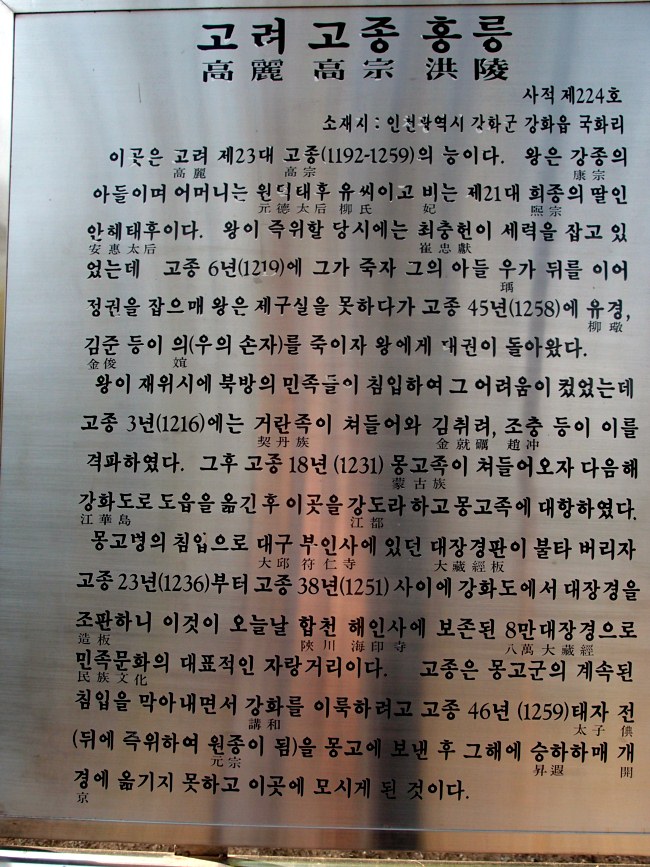 고려 고종 홍릉
高麗 高宗 洪陵
사적 제224호
소재시 : 인천광역시 강화군 강화읍 국화리
이곳은 고려 제23대 고종(1192-1259)의 능이다. 왕은 강종의
高麗 高宗 康宗
아들이며 어머니는 원덕태후 유씨이고 비는 제21대 희종의 딸인
元德太后 柳氏 妃 熙宗
안혜태후이다. 왕이 즉위할 당시에는 최충헌이 세력을 잡고 있
安惠太后 崔忠獻
었는데 고종 6년(1219)에 그가 죽자 그의 아들 우가 뒤를 이어
瑀
정권을 잡으매 왕은 제구실을 못하다가 고종 45년(1258)에 유경,
柳璥
김준 등이 의(우의 손자)를 죽이자 왕에게 대권이 돌아왔다.
金俊 誼
왕이 재위시에 북방의 민족들이 침입하여 그 어려움이 컸었는데
고종 3년(1216)에는 거란족이 쳐들어와 김취려, 조충 등이 이를
契丹族 金就礪 趙冲
격파하였다. 그후 고종 18년 (1231) 몽고족이 쳐들어오자 다음해
蒙古族
강화도로 도읍을 옮긴 후 이곳을 강도라 하고 몽고족에 대항하였다.
江華島 江都
몽고병의 침입으로 대구 부인사에 있던 대장경판이 불타 버리자
大邱 符仁寺 大藏經板
고종 23년(1236)부터 고종 38년(1251) 사이에 강화도에서 대장경을
조판하니 이것이 오늘날 합천 해인사에 보존된 8만대장경으로
造板 陜川 海印寺 八萬大藏經
민족문화의 대표적인 자랑거리이다. 고종은 몽고군의 계속된
民族文化
침입을 막아내면서 강화를 이룩하려고 고종 46년 (1259)태자 전
講和 太子 倎
(뒤에 즉위하여 원종이 됨)을 몽고에 보낸 후 그해에 승하하매 개
元宗 昇遐 開
경에 옮기지 못하고 이곳에 모시게 된 것이다.
京